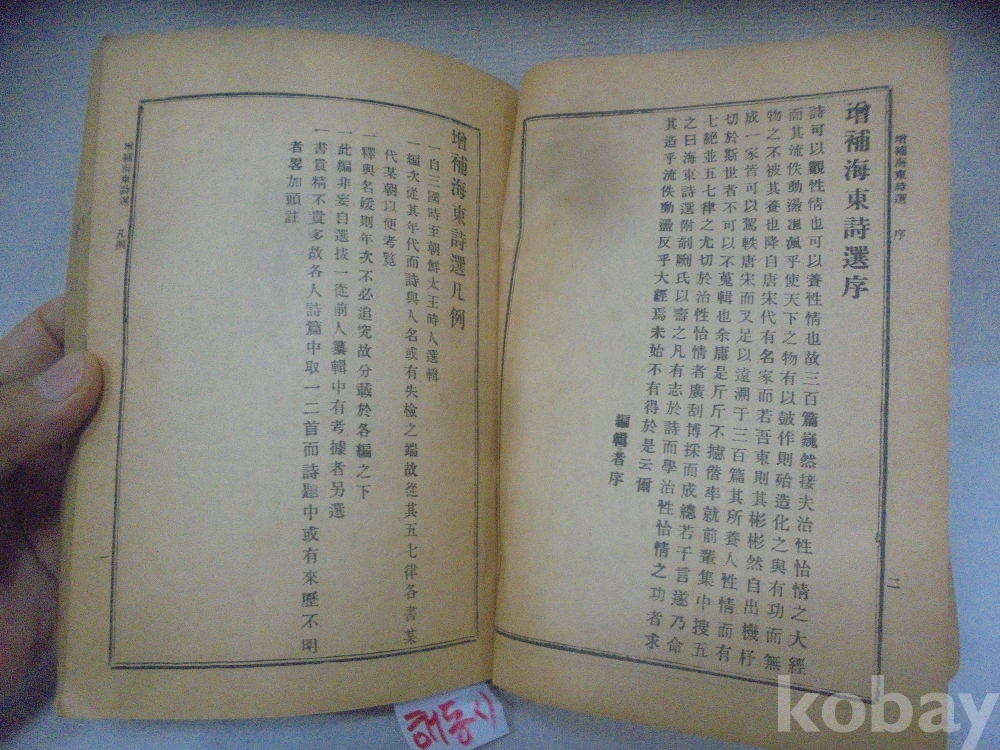 增補海東詩選 序
二
增補海東詩選序
詩可以觀性情也可以養性情也故三百篇巍然接夫治性怡情之大經
而其流佚動盪渢渢乎使天下之物有以皷作則殆造化之與有功而無
物之不被其養也降自唐宋代有名家而若吾東則其彬彬然自出機杼
成一家皆可以駕軼唐宋而又足以遠溯于三百篇其所養人性情而有
切於斯世者不可以不蒐輯也余庸是斤斤不揆僭率就前輩集中搜五
七絶並五七律之尤切於治性怡情者廣刮博採而成總若干言遂乃命
之曰海東詩選附剞劂氏以審之凡有志於詩而學治性怡情之功者求
其造乎流佚動盪反乎大經焉未始不有得於是云爾
編輯者序
增補海東詩選凡例
一自三國時至朝鮮太王時人選輯
一編次從其年代而詩與人名或有失檢之端故從其五七律各書某
代某朝以便考覽
一釋與名媛則年次不必追究故分載於各編之下
一此編非妄自選拔一從前人纂輯中有考據者另選
一書貴精不貴多故各人詩篇中取一二首而詩題中或有來歷不明
者畧加頭註
增補海東詩選 凡例
一
해동시
kobay